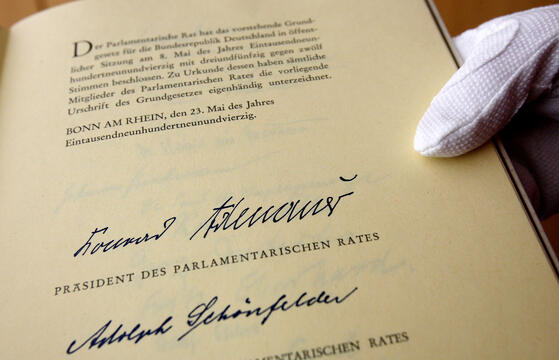 Der Parlamentarische Rat hat das vorstehende Grund-
gesetz für die Bundesrepublik Deutschland in öffent-
licher Sitzung am 8. Mai des Jahres Eintausendneun-
hundertneunundvierzig mit dreiundfünfzig gegen zwölf
Stimmen beschlossen. Zu Urkunde dessen haben sämtliche
Mitglieder des Parlamentarischen Rates die vorliegende
Urschrift des Grundgesetzes eigenhändig unterzeichnet.
BONN AM RHEIN, den 23. Mai des Jahres
Eintausendneunhundertneunundvierzig.
Konrad Adenauer
PRÄSIDENT DES PARLAMENTARISCHEN RATES
Adolph Schönfelder
PARLAMENTARISCHEN RATES